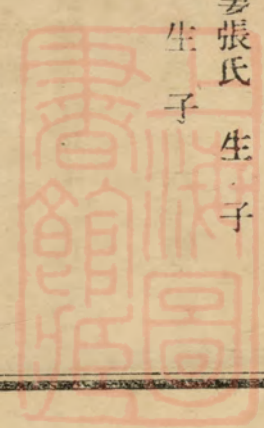 張氏 生 子
生 子
上海圖
書館藏